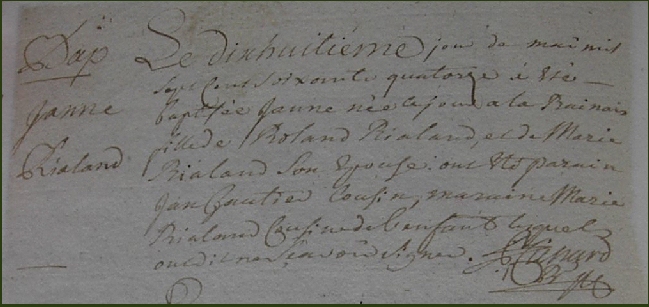 Bap
Janne
Rialand
Le dixhuitiéme jour de mai mil
sept cent soixante quatorze à été
baptisée Janne née le jour a la Rainais
fille de Roland Rialand, et de Marie
Rialand Son Epouse: ont été parain
Jan Gautier Cousin, maraine Marie
Rialand Cousine de l'enfant lesquels
ont dit ne sçavoir signer.